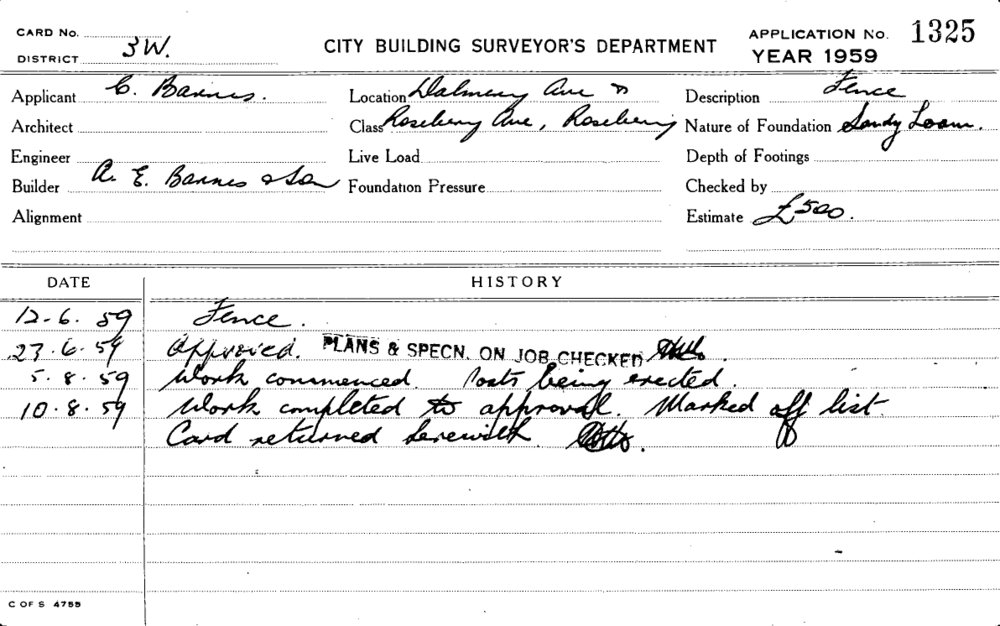 CARD No.
DISTRICT 3W.
CITY BUILDING SURVEYOR'S DEPARTMENT
APPLICATION No. 1325
YEAR 1959
Applicant C. Barnes.
Location Dalmeny Ave &
Description Fence
Architect
Class Rosebery Ave, Rosebery
Nature of Foundation Sandy Loam.
Engineer
Live Load
Depth of Footings
Builder A. E. Barnes & Son
Foundation Pressure
Checked by
Alignment
Estimate £500.
DATE HISTORY
12-6.59 Fence.
23.6.59 Approved. PLANS & SPECN. ON JOB CHECKED
5.8.59 Work commenced. Posts being erected.
10.8.59 Work completed to approval. Marked off list.
Card returned herewith.
C OF S 4755